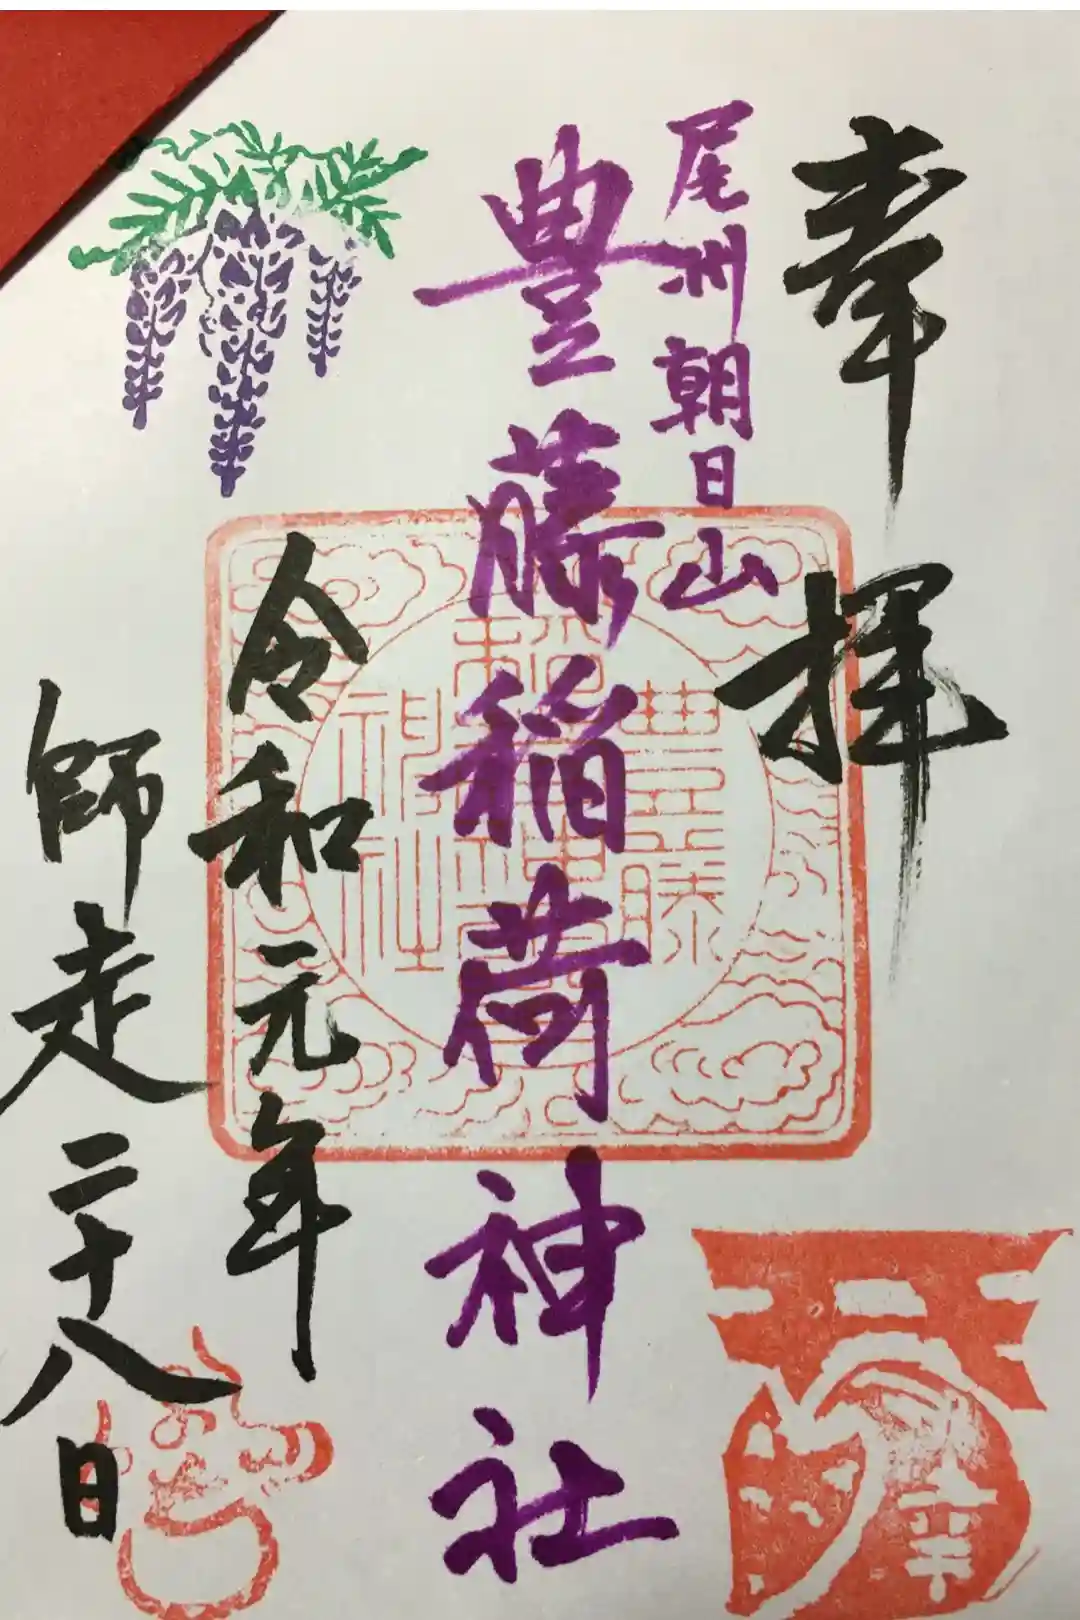 奉拝
尾州朝日山
豊藤稲荷神社
令和元年
師走二十八日
豊藤
稲荷神
社